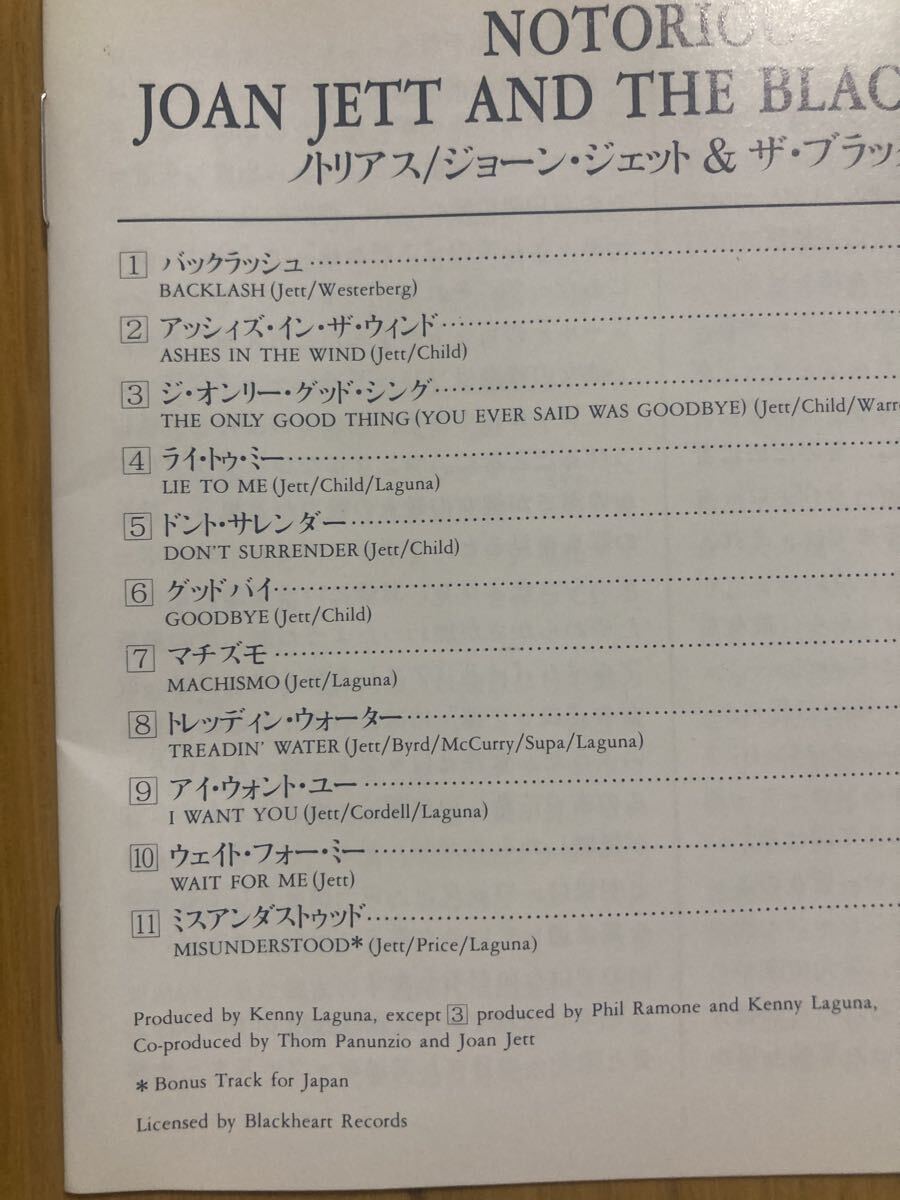 NOTORIOUS
JOAN JETT AND THE BLAC
ノトリアス/ジョーン・ジェット & ザ・ブラッ
1 バックラッシュ
BACKLASH (Jett/Westerberg)
2 アッシィズ・イン・ザ・ウィンド
ASHES IN THE WIND (Jett/Child)
3 ジ・オンリー・グッド・シング
THE ONLY GOOD THING (YOU EVER SAID WAS GOODBYE) (Jett/Child/Warre
4 ライ・トゥ・ミー
LIE TO ME (Jett/Child/Laguna)
5 ドント・サレンダー
DON'T SURRENDER (Jett/Child)
6 グッドバイ
GOODBYE (Jett/Child)
7 マチズモ
MACHISMO (Jett/Laguna)
8 トレッディン・ウォーター
TREADIN' WATER (Jett/Byrd/McCurry/Supa/Laguna)
9 アイ・ウォント・ユー
I WANT YOU (Jett/Cordell/Laguna)
10 ウェイト・フォー・ミー
WAIT FOR ME (Jett)
11 ミスアンダストゥッド
MISUNDERSTOOD* (Jett/Price/Laguna)
Produced by Kenny Laguna, except 3 produced by Phil Ramone and Kenny Laguna,
Co-produced by Thom Panunzio and Joan Jett
* Bonus Track for Japan
Licensed by Blackheart Records